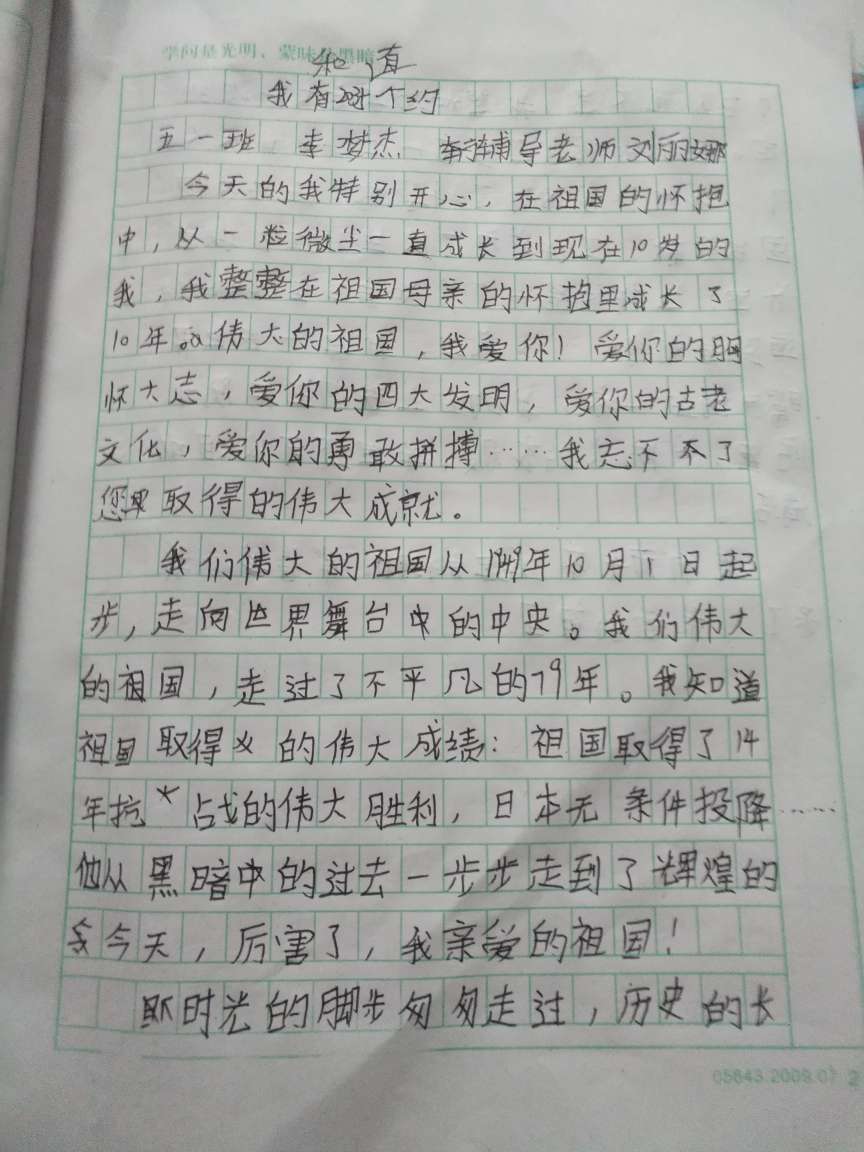 学问是光明、蒙昧是黑暗
和 直
我有 个约
五一班 李梦杰 辅导老师刘丽娜
今天的我特别开心，在祖国的怀抱
中，从一粒微尘一直成长到现在10岁的
我，我整整在祖国母亲的怀抱里成长了
10年。伟大的祖国，我爱你！爱你的胸
怀大志，爱你的四大发明，爱你的古老
文化，爱你的勇敢拼搏……我忘不不了
您取得的伟大成就。
我们伟大的祖国从1949年10月1日起
步，走向世界舞台中的中央。我们伟大
的祖国，走过了不平凡的79年。我知道
祖国取得 的伟大成绩：祖国取得了14
年抗 战的伟大胜利，日本无条件投降……
他从黑暗中的过去一步步走到了辉煌的
今天，厉害了，我亲爱的祖国！
时光的脚步匆匆走过，历史的长
65643.2009.07 2